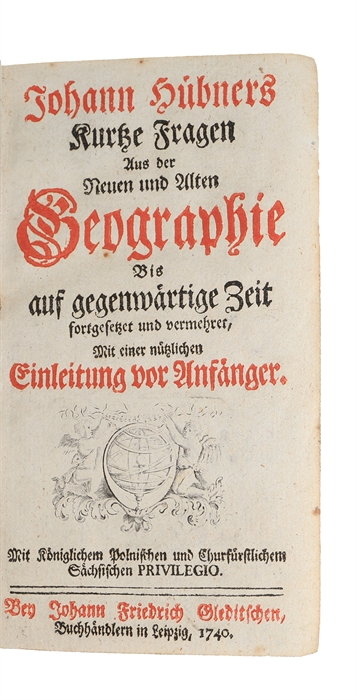 Johann Hübners
Kurtze Fragen
Aus der
Neuen und Alten
Geographie
Bis
auf gegenwärtige Zeit
fortgesetzet und vermehret,
Mit einer nützlichen
Einleitung vor Anfänger.
Mit Königlichem Polnischen und Churfürstlichem
Sächsischen PRIVILEGIO.
Bey Johann Friedrich Gleditschen,
Buchhändlern in Leipzig, 1740.